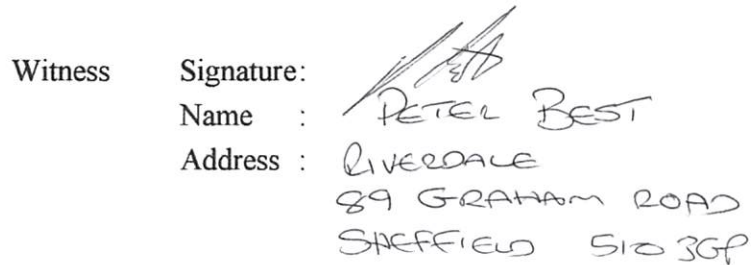 Witness Signature:
Name : PETER BEST
Address : RIVERDALE
89 GRAHAM ROAD
SHEFFIELD S10 3GP